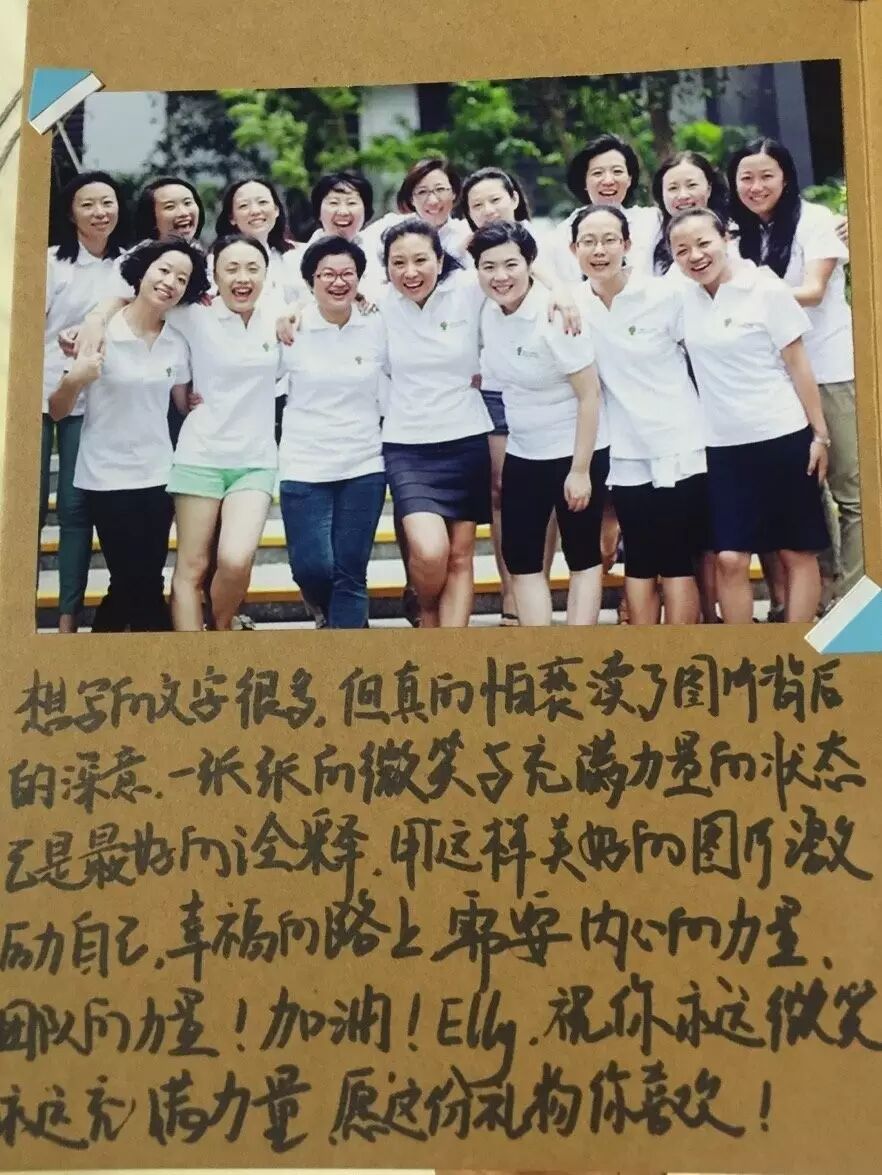 想写的文字很多,但真的怕亵渎了图片背后
的深意.一张张的微笑与充满力量的状态
已是最好的诠释.用这样美好的图片激
励自己.幸福的路上需要内心的力量、
团队的力量!加油!Elly.祝你永远微笑
永远充满力量.愿这份礼物你喜欢!